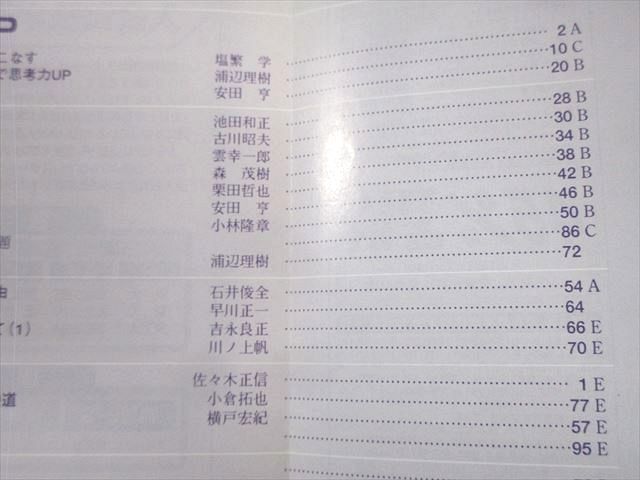 こなす 塩繁 学 2 A
で思考力UP 浦辺理樹 10 C
安田 亨 20 B
池田和正 28 B
古川昭夫 30 B
雲幸一郎 34 B
森 茂樹 38 B
栗田哲也 42 B
安田 亨 46 B
小林隆章 50 B
題 86 C
浦辺理樹 72
由 石井俊全 54 A
早川正一 64
て(1) 吉永良正 66 E
川ノ上帆 70 E
佐々木正信 1 E
道 小倉拓也 77 E
横戸宏紀 57 E
95 E